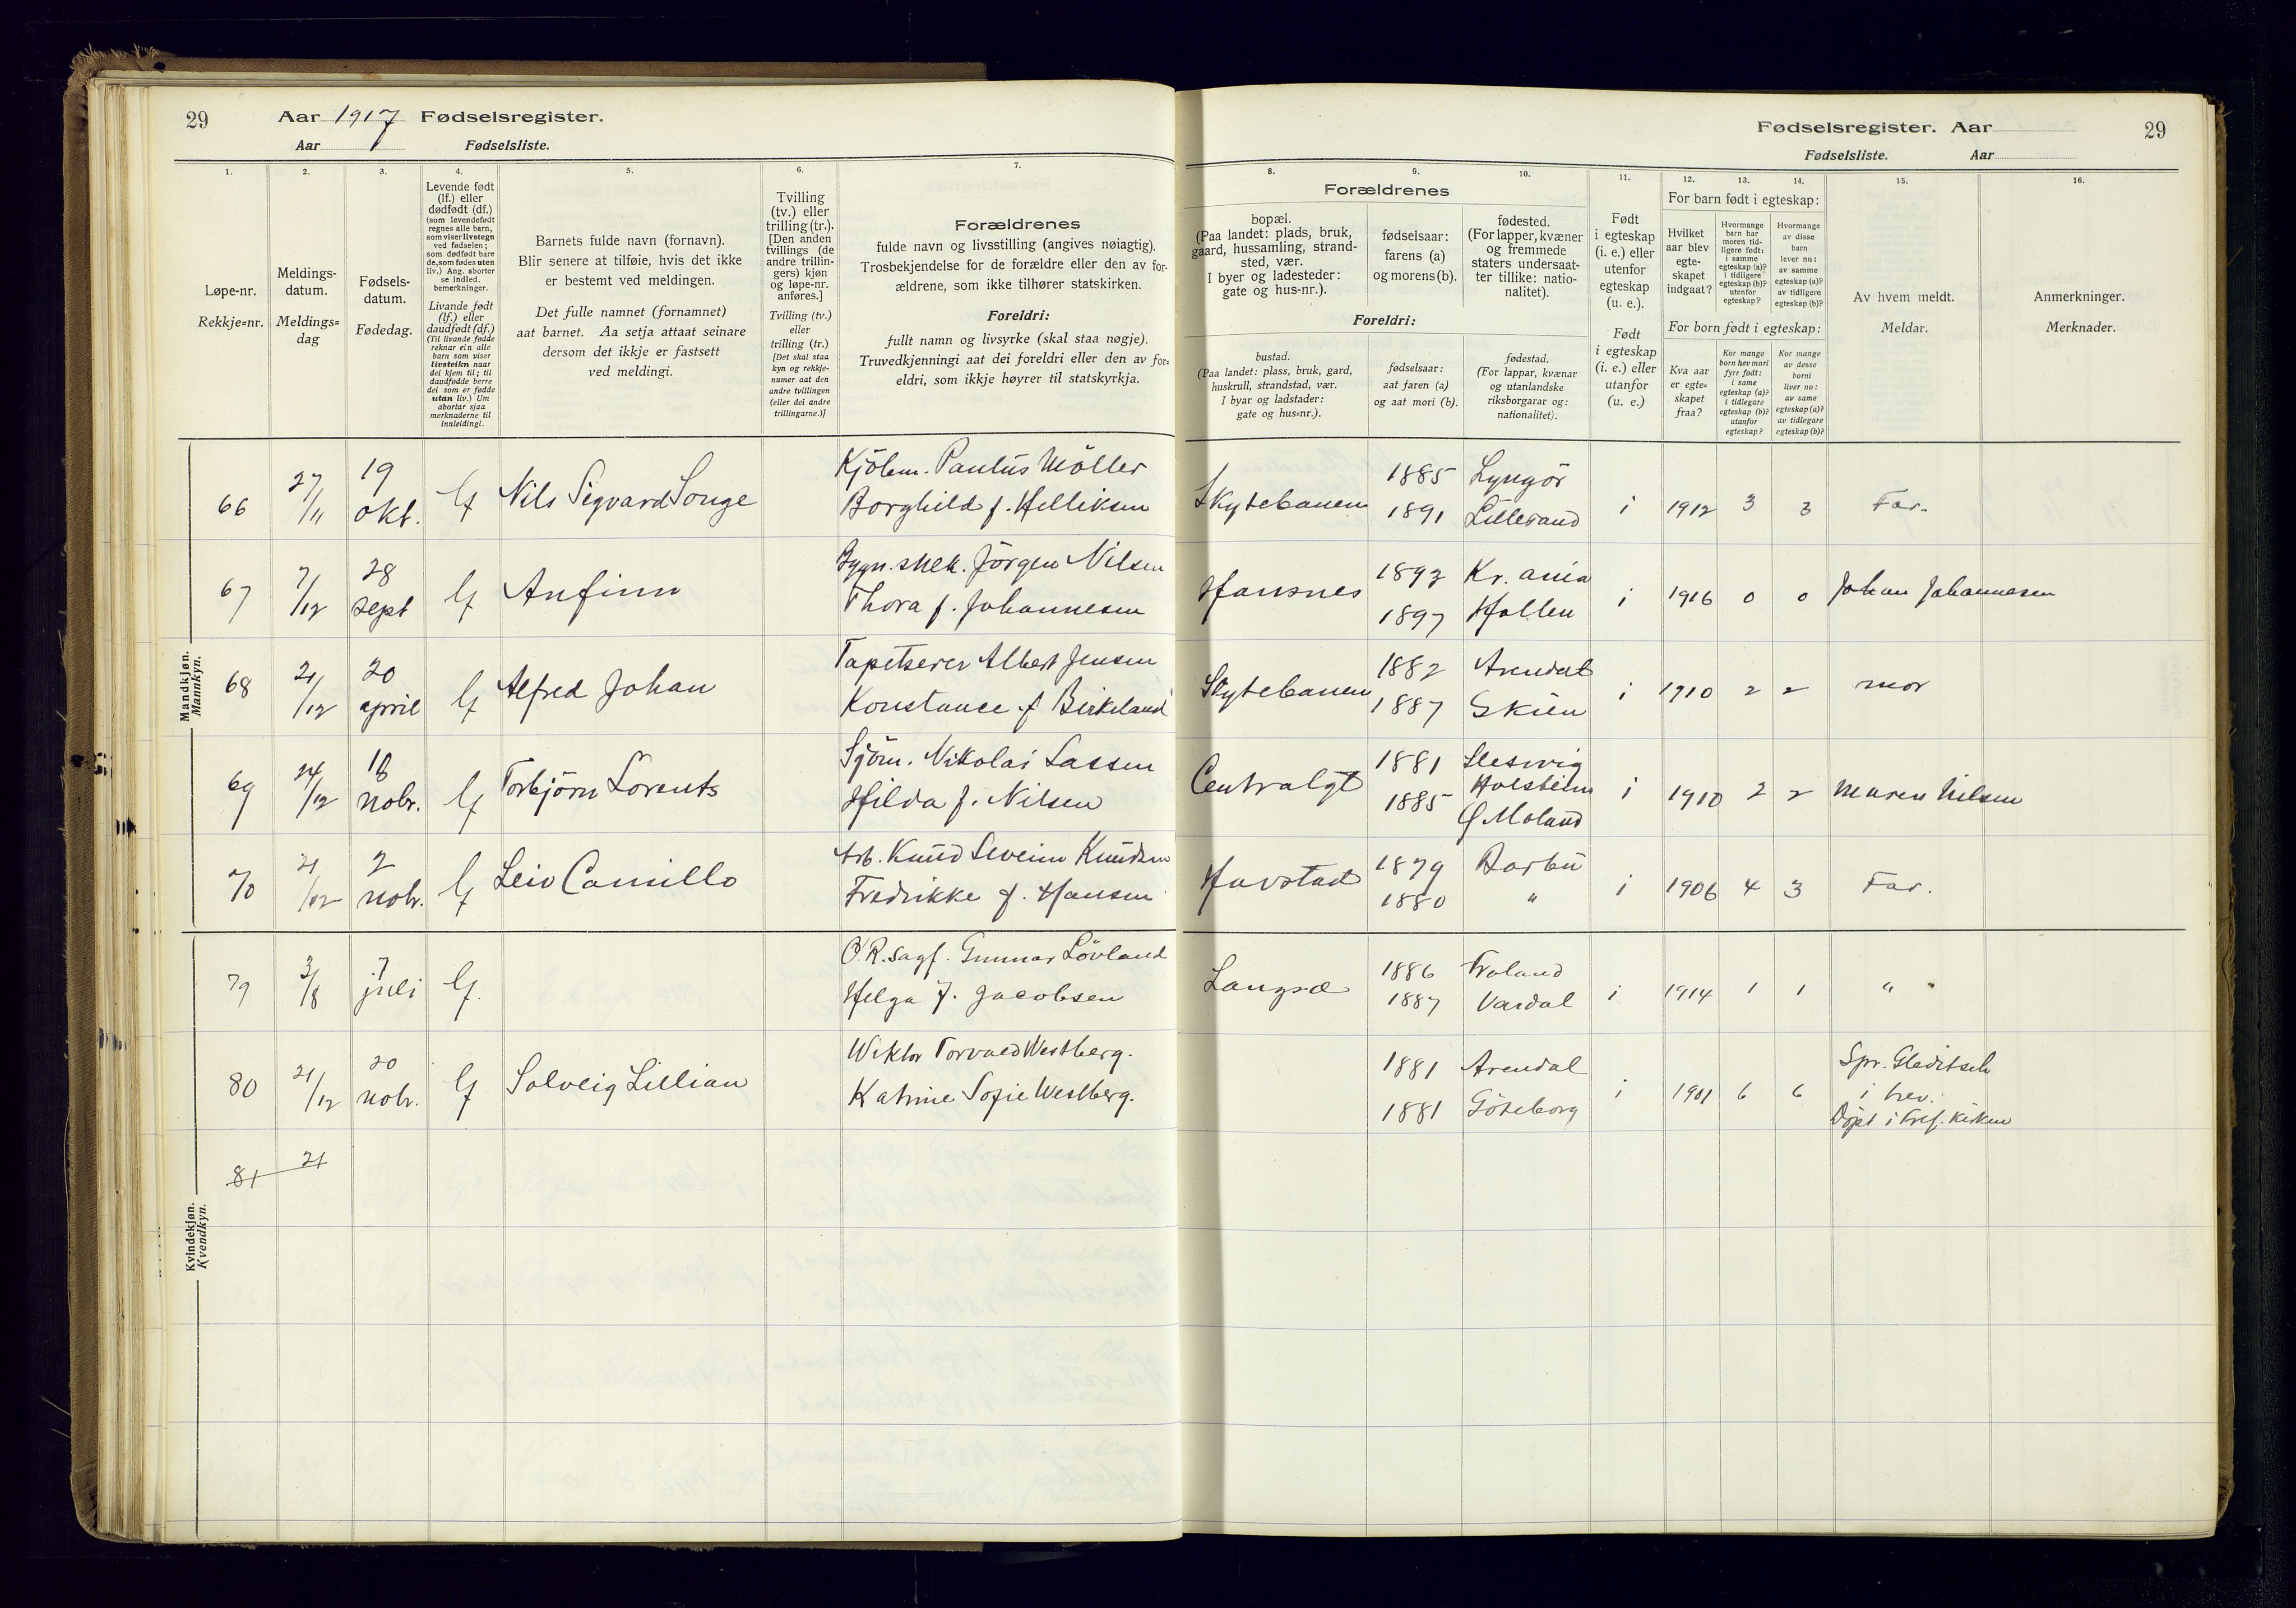 29
Aar 1917 Fødselsregister.
Aar Fødselsliste.
Fødselsregister. Aar
29
Fødselsliste. Aar
1.
Løpe-nr.
Rekkje=nr.
2.
Meldings-
datum.
Meldings=
dag
3.
Fødsels-
datum.
Fødedag.
4.
Levende født
(lf.) eller
dødfødt (df.)
(som levendefødt
regnes alle barn,
som viser livstegn
ved fødselen;
som dødfødt bare
de, som fødes uten
liv.) Ang. aborter
se indled.
bemerkninger.
Livande født
(lf.) eller
daudfødt (df.)
(Til livande fødde
reknar ein alle
barn som viser
livsteikn naar
dei kjem til; til
daudfødde berre
dei som er fødde
utan liv.) Um
abortar sjaa
merknaderne til
innleidingi.
5.
Barnets fulde navn (fornavn).
Blir senere at tilføie, hvis det ikke
er bestemt ved meldingen.
Det fulle namnet (fornamnet)
aat barnet. Aa setja attaat seinare
dersom det ikkje er fastsett
ved meldingi.
6.
Tvilling
(tv.) eller
trilling (tr.).
[Den anden
tvillings (de
andre trillin-
gers) kjøn
og løpe-nr.
anføres.]
Tvilling (tv.)
eller
trilling (tr.)
[Det skal staa
kyn og rekkje-
numer aat den
andre tvillingen
(eller dei andre
trillingarne.)]
7.
Forældrenes
fulde navn og livsstilling (angives nøiagtig).
Trosbekjendelse for de forældre eller den av for-
ældrene, som ikke tilhører statskirken.
Foreldri:
fullt namn og livsyrke (skal staa nøgje).
Truvedkjenningi aat dei foreldri eller den av for=
eldri, som ikkje høyrer til statskyrkja.
8.
Forældrenes
bopæl.
(Paa landet: plads, bruk,
gaard, hussamling, strand-
sted, vær.
I byer og ladesteder:
gate og hus-nr.).
Foreldri:
bustad.
(Paa landet: plass, bruk, gard,
huskrull, strandstad, vær.
I byar og ladstader:
gate og hus=nr.).
9.
fødselsaar:
farens (a)
og morens (b).
fødselsaar:
aat faren (a)
og aat mori (b).
10.
fødested.
(For lapper, kvæner
og fremmede
staters undersaat-
ter tillike: natio-
nalitet).
fødestad.
(For lappar, kvænar
og utanlandske
riksborgarar og:
nationalitet).
11.
Født
i egteskap
(i. e.) eller
utenfor
egteskap
(u. e.).
Født
i egteskap
(i. e.) eller
utanfor
(u. e.)
12.
13.
14.
For barn født i egteskap:
Hvilket
aar blev
egte-
skapet
indgaat?
Hvormange
barn har
moren tid-
ligere født:
i samme
egteskap (a)?
i tidligere
egteskap (b)?
utenfor
egteskap?
Hvormange
av disse
barn
lever nu:
av samme
egteskap (a)?
av tidligere
egteskap (b)?
For born født i egteskap:
Kva aar
er egte=
skapet
fraa?
Kor mange
born hev mori
fyrr født:
i same
egteskap (a)?
i tidlegare
egteskap (b)?
utanfor
egteskap?
Kor mange
av desse
borni
liver no:
av same
egteskap (a)?
av tidlegare
egteskap (b)?
15.
Av hvem meldt.
Meldar.
16.
Anmerkninger.
Merknader.
Mandkjøn.
Mannkyn.
66 27/11 19 okt. lf Nils Sigvard Songe
Kjölm. Paulus Möller
Borghild f. Helliksen
Skytebanen 1885 Lyngör
1891 Lillesand
i 1912 3 3 Far.
67 7/12 28 sept lf Anfinn
Bygn. snek. Jörgen Nilsen
Thora f. Johannesen
Hansnes 1893 Kr. ania
1897 Hollen
i 1916 0 0 Johan Johannesen
68 21/12 20 april lf Alfred Johan
Tapetserer Albert Jensen
Konstance f Birkeland
Skytebanen 1882 Arendal
1887 Skien
i 1910 2 2 mor
69 24/12 18 nobr. lf Torbjörn Lorents
Sjöm. Nikolai Lassen
Hilda f. Nilsen
Centralgt 1881 Slesvig
Holstein
1885 Ø Moland
i 1910 2 2 Maren Nilsen
70 21/12 2 nobr. lf Leiv Camillo
Arb. Knud Severin Knudsen
Fredrikke f. Hansen
Havstad 1879 Barbu
1880 "
i 1906 4 3 Far.
Kvindekjøn.
Kvendkyn.
79 3/8 7 juli lf.
O.R.sagf. Gunnar Lövland
Helga f. Jacobsen
Langsæ 1886 Froland
1887 Vardal
i 1914 1 1 "
80 21/12 20 nobr. lf Solveig Lillian
Wiktor Torvald Westberg.
Katrine Sofie Westberg.
1881 Arendal
1881 Göteborg
i 1901 6 6 Spr. Gleditsch
i brev.
Döpt i Tref. kirken
81 21